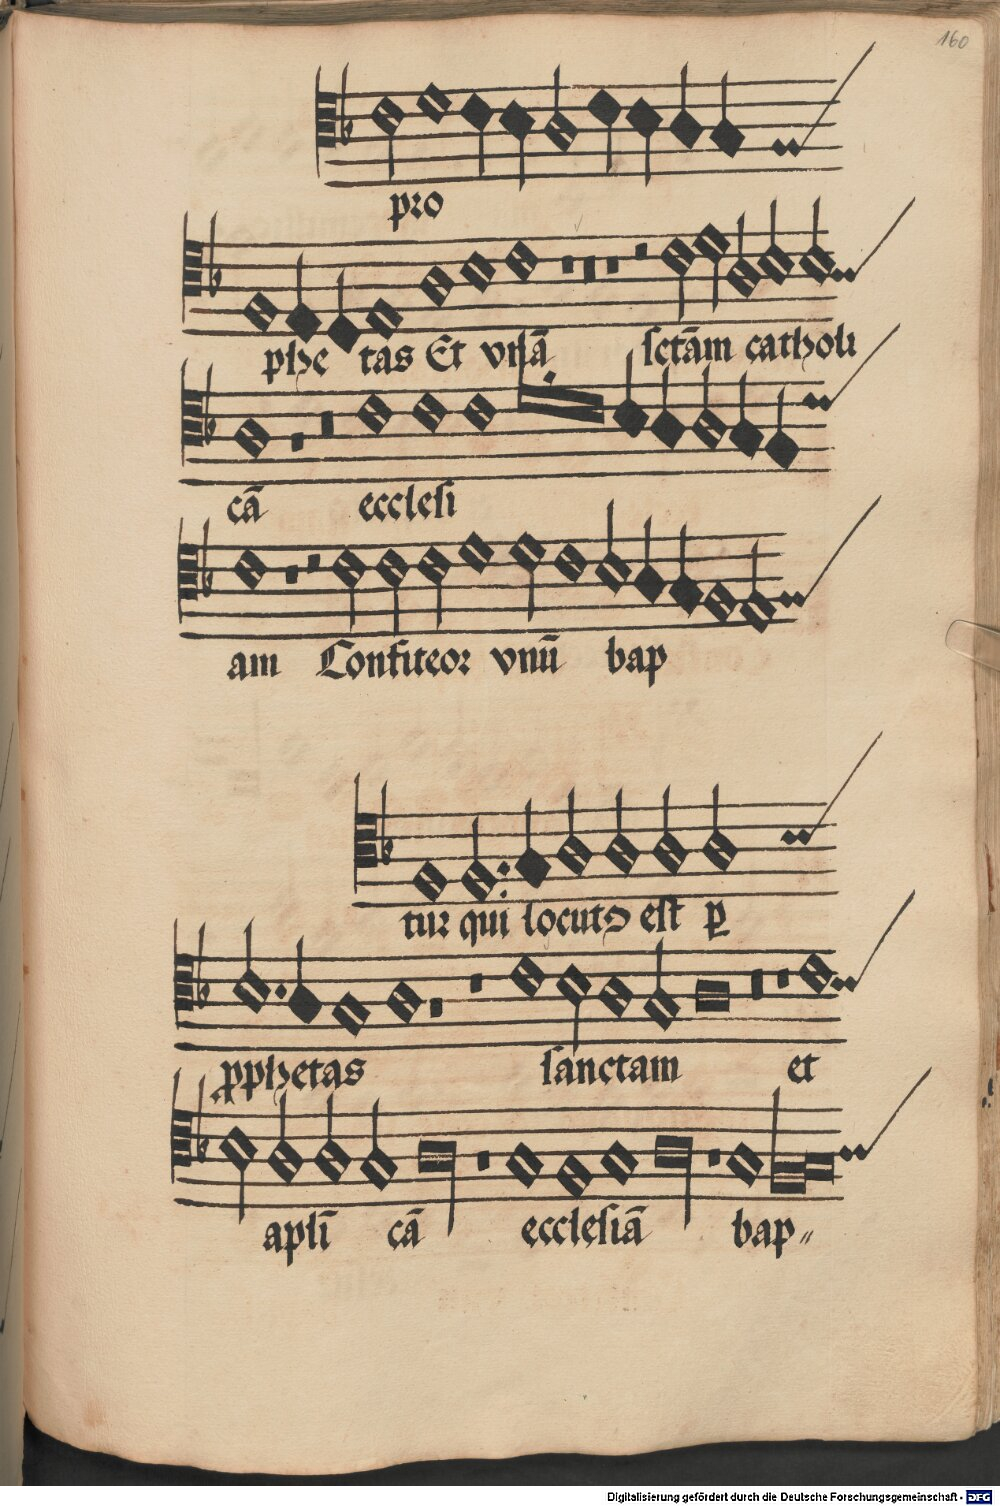 160
pro
phe tas Et vnā sctām catholi
cā ecclesi
am Confiteor vnū bap
tur qui locutꝰ est ꝑ
ꝓphetas sanctam et
apli̅ cā ecclesiā bap〃
Digitalisierung gefördert durch die Deutsche Forschungsgemeinschaft - DFG